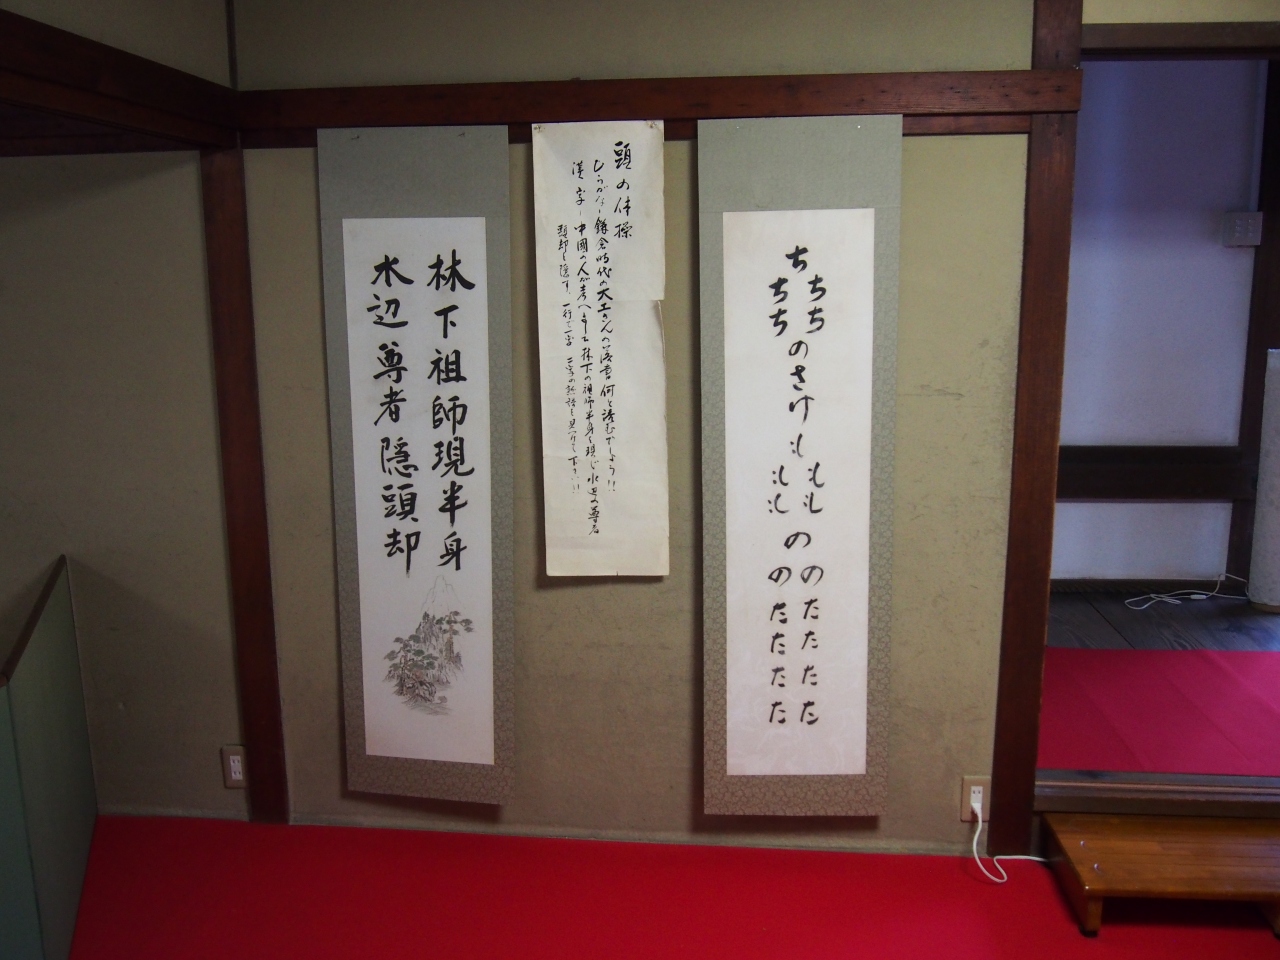 ち
ちち
ちち
のさけ
も
もも
もも
の
のたたたた
のたたたた
頭の体操
ひらがな―鎌倉時代の大工さんの落書何と読むでしょう!!
漢字―中國の人が考へました林下の祖師半身を現じ水辺の尊者
頭却を隠す、一行で一字 二字の熟語を見つけて下さい!!
林下祖師現半身
水辺尊者隠頭却